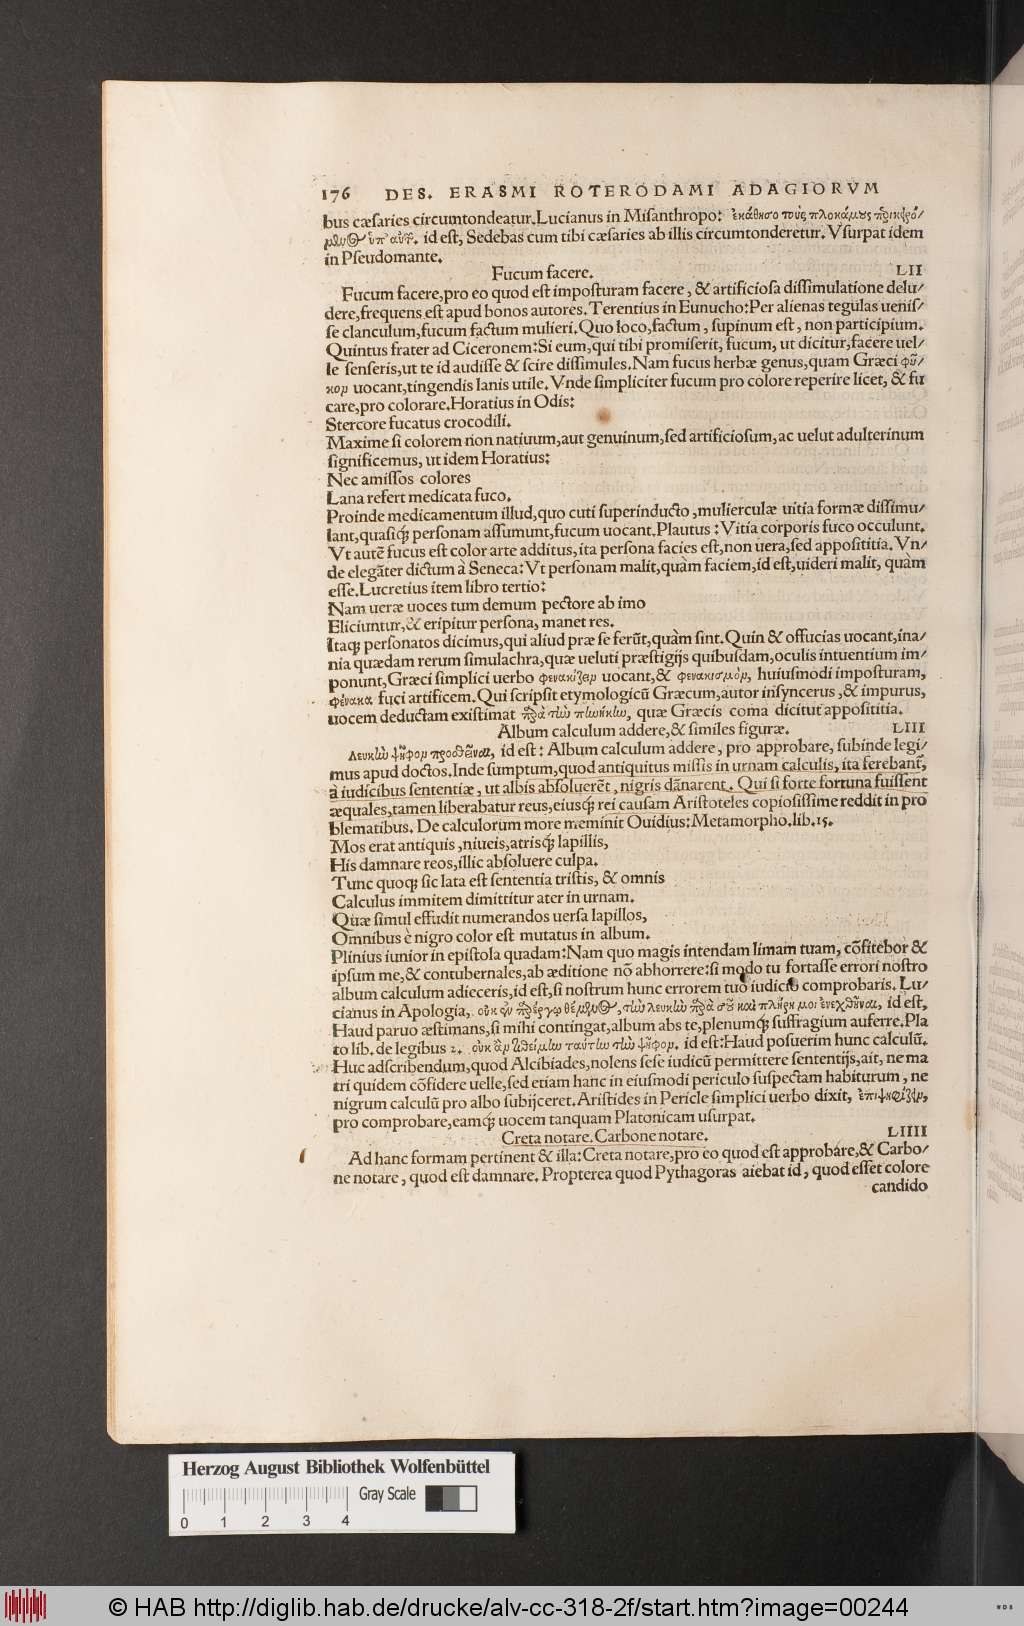 176 DES. ERASMI ROTERODAMI ADAGIORVM
bus cæſaries circumtondeatur. Lucianus in Miſanthropo: ἐκάθησο τοὺς πλοκάμους περικειρό/
μενος ὑπ' αὐτῶν. id eſt, Sedebas cum tibi cæſaries ab illis circumtonderetur. Vſurpat idem
in Pſeudomante.
Fucum facere. LII
Fucum facere, pro eo quod eſt impoſturam facere, & artificioſa diſſimulatione delu/
dere, frequens eſt apud bonos autores. Terentius in Eunucho: Per alienas tegulas ueniſ/
ſe clanculum, fucum factum mulieri. Quo loco, factum, ſupinum eſt, non participium.
Quintus frater ad Ciceronem: Si eum, qui tibi promiſerit, fucum, ut dicitur, facere uel/
le ſenſeris, ut te id audiſſe & ſcire diſſimules. Nam fucus herbæ genus, quam Græci φῦ/
κον uocant, tingendis lanis utile. Vnde ſimpliciter fucum pro colore reperire licet, & fu
care, pro colorare. Horatius in Odis:
Stercore fucatus crocodili.
Maxime ſi colorem non natiuum, aut genuinum, ſed artificioſum, ac uelut adulterinum
ſignificemus, ut idem Horatius:
Nec amiſſos colores
Lana refert medicata fuco.
Proinde medicamentum illud, quo cuti ſuperinducto, mulierculæ uitia formæ diſſimu/
lant, quaſiq; perſonam aſſumunt, fucum uocant. Plautus: Vitia corporis fuco occulunt.
Vt autē fucus eſt color arte additus, ita perſona facies eſt, non uera, ſed appoſititia. Vn/
de elegāter dictum à Seneca: Vt perſonam malit, quàm faciem, id eſt, uideri malit, quàm
eſſe. Lucretius item libro tertio:
Nam ueræ uoces tum demum pectore ab imo
Eliciuntur, & eripitur perſona, manet res.
Itaq; perſonatos dicimus, qui aliud præ ſe ferūt, quàm ſint. Quin & offucias uocant, ina/
nia quædam rerum ſimulachra, quæ ueluti præſtigijs quibuſdam, oculis intuentium im/
ponunt, Græci ſimplici uerbo φενακίζειν uocant, & φενακισμὸν, huiuſmodi impoſturam,
φένακα fuci artificem. Qui ſcripſit etymologicū Græcum, autor inſyncerus, & impurus,
uocem deductam exiſtimat παρὰ τὴν πηνήκην, quæ Græcis coma dicitur appoſititia.
Album calculum addere, & ſimiles figuræ. LIII
Λευκὴν ψῆφον προσθεῖναι, id eſt: Album calculum addere, pro approbare, ſubinde legi/
mus apud doctos. Inde ſumptum, quod antiquitus miſſis in urnam calculis, ita ferebant,
à iudicibus ſententiæ, ut albis abſoluerēt, nigris dānarent. Qui ſi forte fortuna fuiſſent
æquales, tamen liberabatur reus, eiusq; rei cauſam Ariſtoteles copioſiſſime reddit in pro
blematibus. De calculorum more meminit Ouidius: Metamorpho. lib. 15.
Mos erat antiquis, niueis, atrisq; lapillis,
His damnare reos, illic abſoluere culpa.
Tunc quoq; ſic lata eſt ſententia triſtis, & omnis
Calculus immitem dimittitur ater in urnam.
Quæ ſimul effudit numerandos uerſa lapillos,
Omnibus è nigro color eſt mutatus in album.
Plinius iunior in epiſtola quadam: Nam quo magis intendam limam tuam, cōfitebor &
ipſum me, & contubernales, ab æditione nō abhorrere: ſi modo tu fortaſſe errori noſtro
album calculum adieceris, id eſt, ſi noſtrum hunc errorem tuo iudicio comprobaris. Lu/
cianus in Apologia, οὐκ ἐν παρέργῳ θέμενος, τὴν λευκὴν παρὰ σοῦ καὶ πλήρη μοι ἐνεχθῆναι, id eſt,
Haud paruo æſtimans, ſi mihi contingat, album abs te, plenumq; ſuffragium auferre. Pla
to lib. de legibus 2. οὐκ ἂν θείμην ταύτην τὴν ψῆφον. id eſt: Haud poſuerim hunc calculū.
Huc adſcribendum, quod Alcibiades, nolens ſeſe iudicū permittere ſententijs, ait, ne ma
tri quidem cōfidere uelle, ſed etiam hanc in eiuſmodi periculo ſuſpectam habiturum, ne
nigrum calculū pro albo ſubijceret. Ariſtides in Pericle ſimplici uerbo dixit, ἐπιψηφίζειν,
pro comprobare, eamq; uocem tanquam Platonicam uſurpat.
Creta notare. Carbone notare. LIIII
Ad hanc formam pertinent & illa: Creta notare, pro eo quod eſt approbare, & Carbo/
ne notare, quod eſt damnare. Propterea quod Pythagoras aiebat id, quod eſſet colore
candido
Herzog August Bibliothek Wolfenbüttel
Gray Scale
0 1 2 3 4
© HAB http://diglib.hab.de/drucke/alv-cc-318-2f/start.htm?image=00244